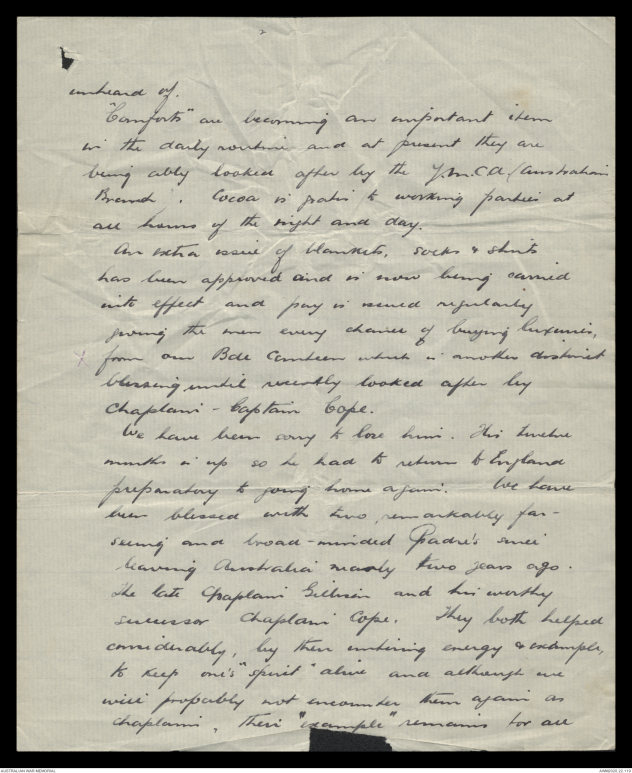 2
unheard of.
"Comforts" are becoming an important item
in the daily routine and at present they are
being ably looked after by the Y.M.C.A. (Australian
Branch). Cocoa is gratis to working parties at
all hours of the night and day.
An extra issue of blankets, socks & shirts
has been approved and is now being carried
into effect and pay is issued regularly
giving the men every chance of buying luxuries,
X from our Bde Canteen which is another distinct
blessing until recently looked after by
Chaplain - Captain Cope.
We have been sorry to lose him. His twelve
months is up so he had to return to England
preparatory to going home again. We have
been blessed with two remarkably far-
seeing and broad-minded Padre's since
leaving Australia nearly two years ago.
The late Chaplain Gillison and his worthy
successor Chaplain Cope. They both helped
considerably, by their untiring energy & example,
to keep one's "spirit" alive and although we
will probably not encounter them again as
chaplains, their "example" remains for all
AUSTRALIAN WAR MEMORIAL